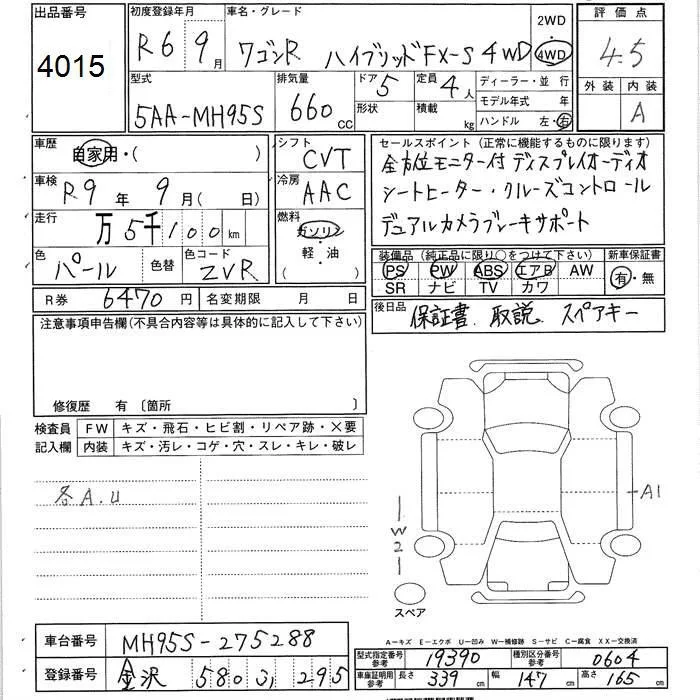 出品番号 初度登録年月 車名・グレード 2WD 評価点
4015 R6年 9月 ワゴンR ハイブリッドFX-S 4WD 4WD 4.5
型式 排気量 ドア 定員 ディーラー・並行 外装 内装
5AA-MH95S 660cc 5 4人 モデル年式 年 A
形状 積載 kg ハンドル 左・右
車歴 シフト セールスポイント(正常に機能するものに限ります)
自家用・( ) CVT 全方位モニター付ディスプレイオーディオ
車検 冷房 シートヒーター・クルーズコントロール
R9年 9月( 日) AAC デュアルカメラブレーキサポート
走行 燃料
万5千100km ガソリン
軽・油
色 パール 色替 色コード ZVR
装備品(純正品に限り○をつけて下さい) 新車保証書
PS PW ABS エアB AW 有・無
SR ナビ TV カワ
R券 6470円 名変期限 月 日
後日品 保証書 取説 スペアキー
注意事項申告欄(不具合内容等は具体的に記入して下さい)
修復歴 有〔箇所 〕
検査員 FW キズ・飛石・ヒビ割・リペア跡・×要
記入欄 内装 キズ・汚レ・コゲ・穴・スレ・キレ・破レ
各A.U
A1
W2
スペア
A-キズ E-エクボ U-凹み W-補修跡 S-サビ C-腐食 XX-交換済
車台番号 MH95S-275288
型式指定番号参考 19390 種別区分番号参考 0604
登録番号 金沢 580 31 295
車庫証明用参考 長さ 339cm 幅 147cm 高さ 165cm